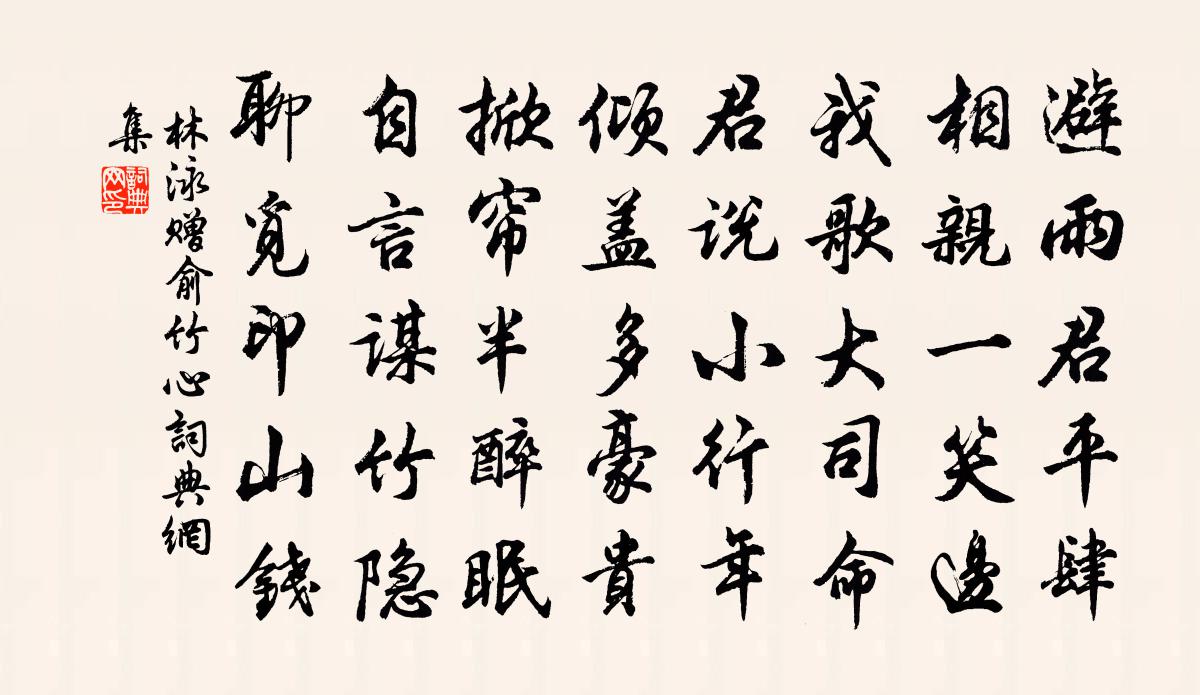 避雨君平肆
相親一笑邊
我歌大司命
君说小行年
傾盖多豪貴
掀帘半醉眠
自言谋竹隐
聊覓印山錢
林泳赠俞竹心詞典網
集
詞典网印